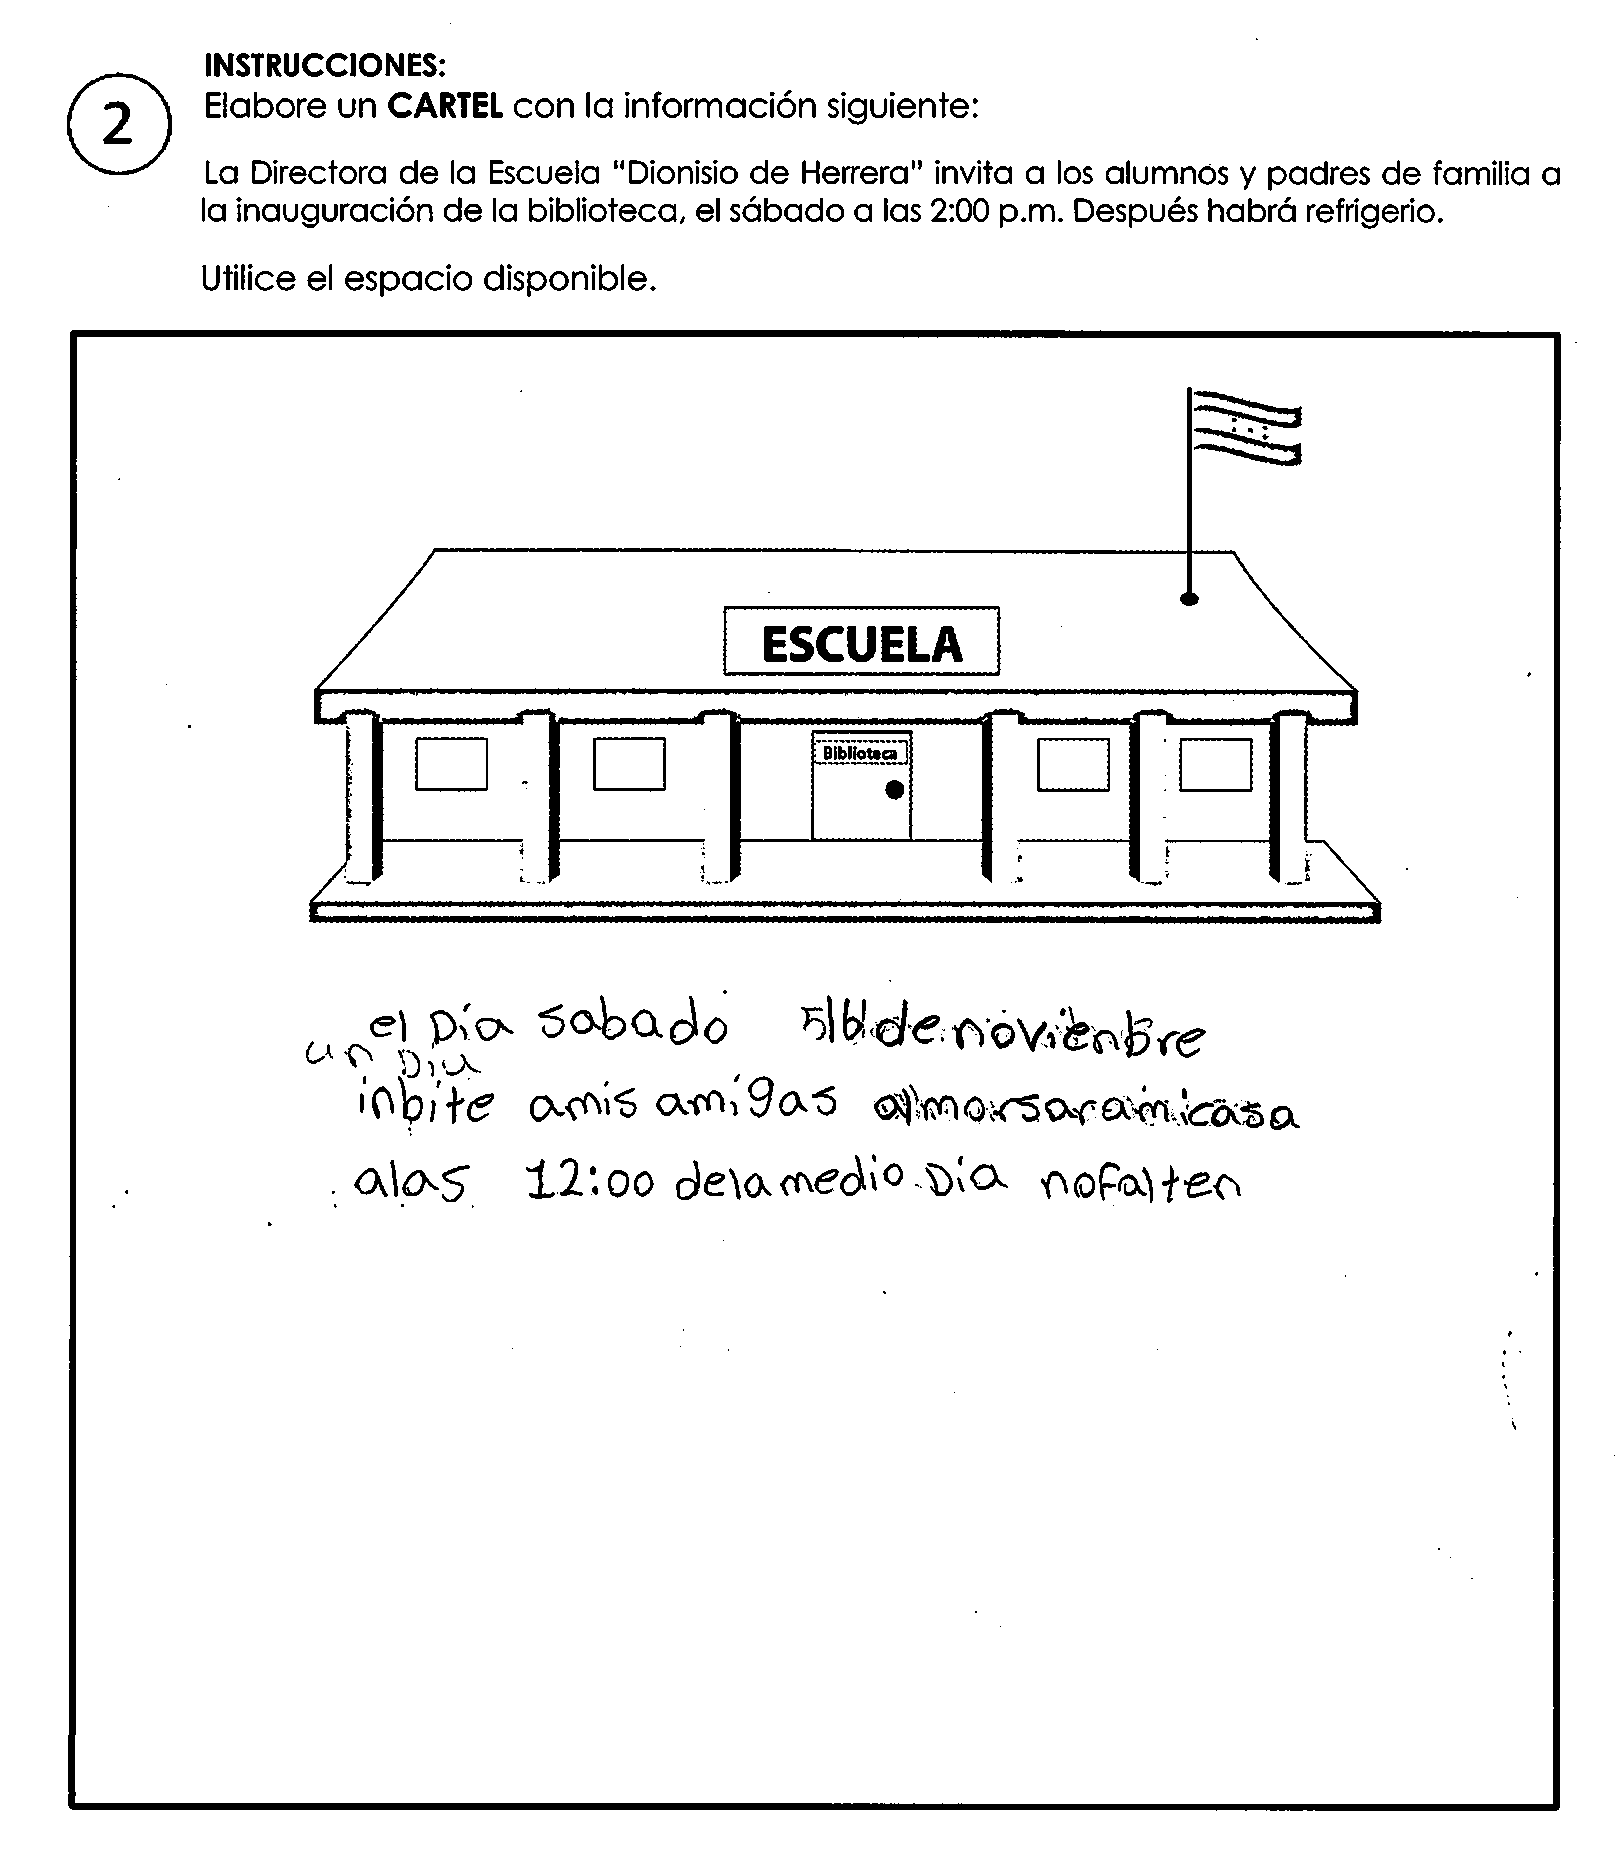 INSTRUCCIONES:
2
Elabore un CARTEL con la información siguiente:
La Directora de la Escuela "Dionisio de Herrera" invita a los alumnos y padres de familia a
la inauguración de la biblioteca, el sábado a las 2:00 p.m. Después habrá refrigerio.
Utilice el espacio disponible.
ESCUELA
Biblioteca
el Día sabado de novienbre
un Dia
inbite amis amigas almorsaramicasa
alas 12:00 delamedio Día nofalten